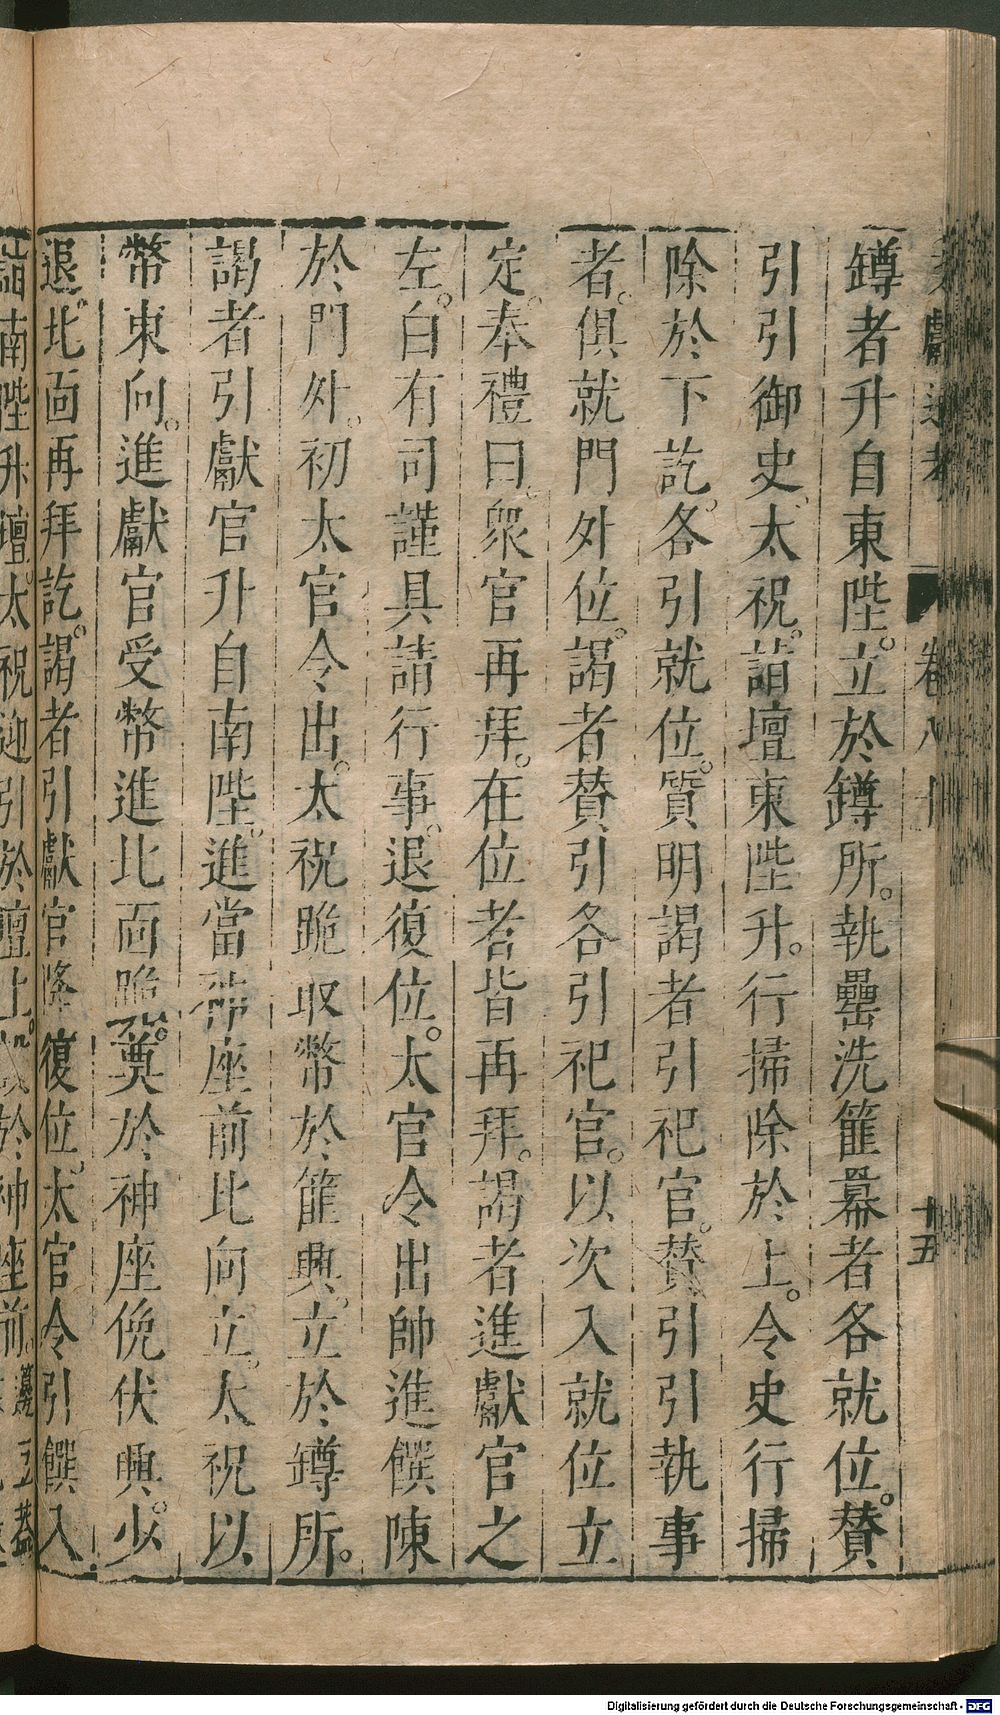 鐏者升自東陛。立於鐏所。執罍洗篚羃者各就位。贊
引引御史、太祝。詣壇東陛升。行掃除於上。令史行掃
除於下訖。各引就位。質明謁者引祀官。贊引引執事
者。俱就門外位。謁者贊引各引祀官。以次入就位立
定。奉禮曰。衆官再拜。在位者皆再拜。謁者進獻官之
左。白有司謹具請行事。退復位。太官令出帥進饌陳
於門外。初太官令出。太祝跪取幣於篚興。立於鐏所。
謁者引獻官升自南陛。進當神座前北向立。太祝以
幣東向。進獻官受幣進北面跪奠。於神座俛伏興。少
退。北面再拜訖。謁者引獻官降復位。太官令引饌入
詣南陛升壇。太祝迎引於壇上。設於神座前。籩豆蓋
獻通考 卷八十 十五
Digitalisierung gefördert durch die Deutsche Forschungsgemeinschaft - DFG